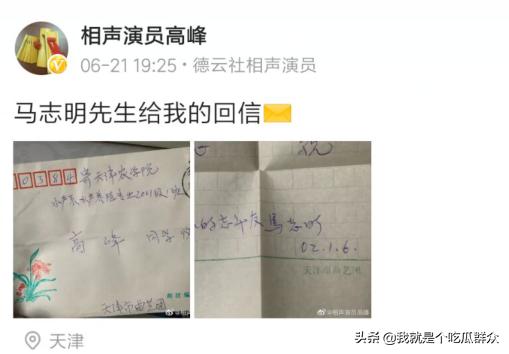 相声演员高峰
06-21 19:25·德云社相声演员
马志明先生给我的回信✉️
00384
寄天津农学院
水产系水产养殖专业2001级1班
高峰 同学 收
天津市曲艺团
祝
的忘年友马志明
02.1.6.
天津市曲艺团
@相声演员高峰
@相声演员高峰
天津
头条 @我就是个吃瓜群众